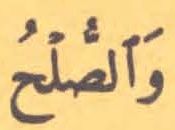 وَٱلصُّلۡحُ